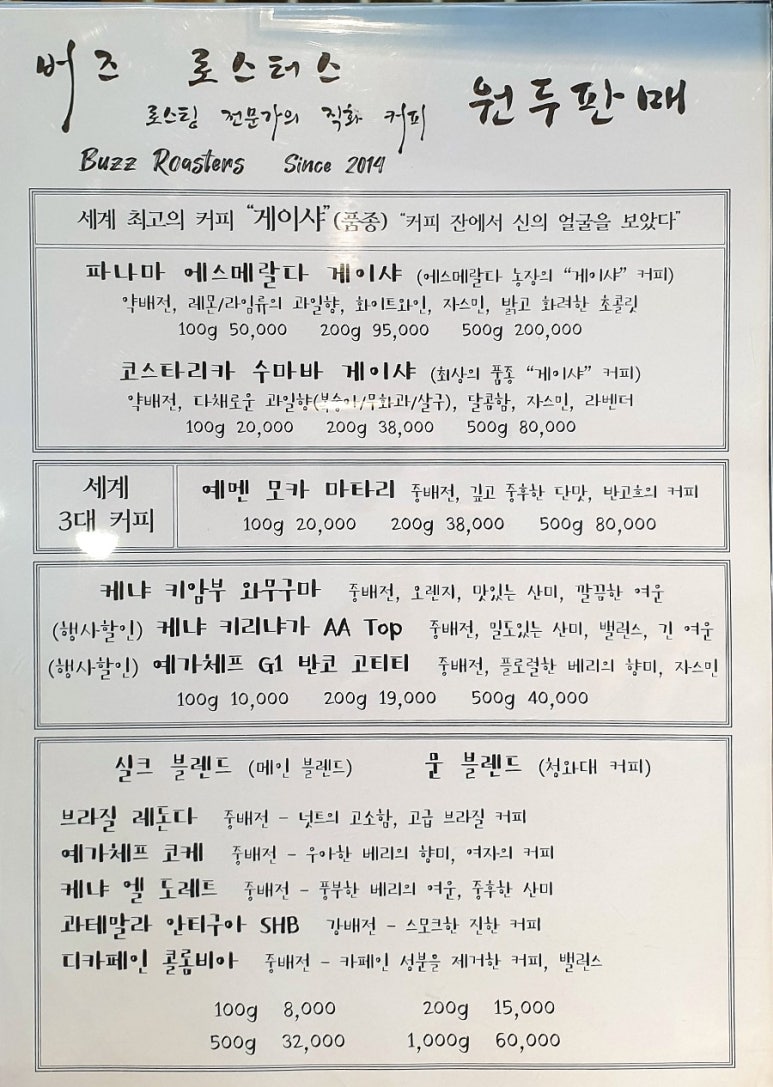 버즈 로스터스 원두판매
로스팅 전문가의 직화 커피
Buzz Roasters Since 2014
세계 최고의 커피 “게이샤”(품종) “커피 잔에서 신의 얼굴을 보았다”
파나마 에스메랄다 게이샤 (에스메랄다 농장의 “게이샤” 커피)
약배전, 레몬/라임류의 과일향, 화이트와인, 자스민, 밝고 화려한 초콜릿
100g 50,000 200g 95,000 500g 200,000
코스타리카 수마바 게이샤 (최상의 품종 “게이샤” 커피)
약배전, 다채로운 과일향(복숭아/무화과/살구), 달콤함, 자스민, 라벤더
100g 20,000 200g 38,000 500g 80,000
세계
3대 커피
예멘 모카 마타리 중배전, 깊고 중후한 단맛, 반고흐의 커피
100g 20,000 200g 38,000 500g 80,000
케냐 키암부 와무구마 중배전, 오렌지, 맛있는 산미, 깔끔한 여운
(행사할인) 케냐 키리냐가 AA Top 중배전, 밀도있는 산미, 밸런스, 긴 여운
(행사할인) 예가체프 G1 반코 고티티 중배전, 플로럴한 베리의 향미, 자스민
100g 10,000 200g 19,000 500g 40,000
실크 블렌드 (메인 블렌드) 문 블렌드 (청와대 커피)
브라질 레돈다 중배전 - 넛트의 고소함, 고급 브라질 커피
예가체프 코케 중배전 - 우아한 베리의 향미, 여자의 커피
케냐 엘 도레트 중배전 - 풍부한 베리의 여운, 중후한 산미
과테말라 안티구아 SHB 강배전 - 스모크한 진한 커피
디카페인 콜롬비아 중배전 - 카페인 성분을 제거한 커피, 밸런스
100g 8,000 200g 15,000
500g 32,000 1,000g 60,000